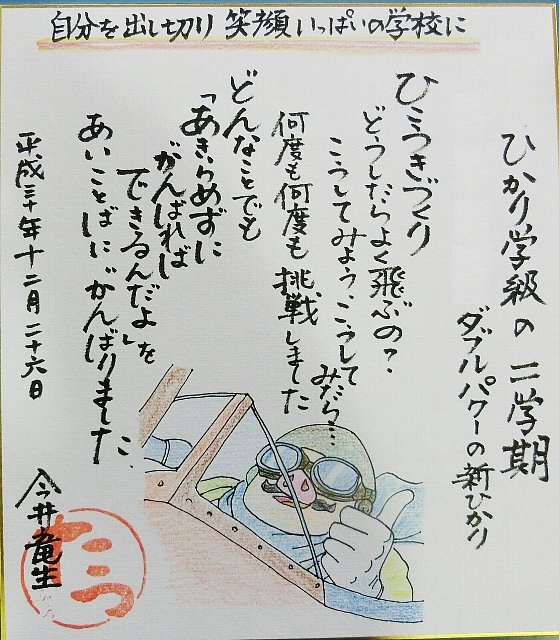 自分を出し切り 笑顔いっぱいの学校に
ひかり学級の二学期
ダブルパワーの新ひかり
ひこうきづくり
どうしたらよく飛ぶの？
こうしてみよう、こうして
みたら…
何度も何度も挑戦しました
どんなことでも
「あきらめずに
がんばれば
できるんだよ」を
あいことばにがんばりました
平成三十年十二月二十六日
今井竜生
たつ